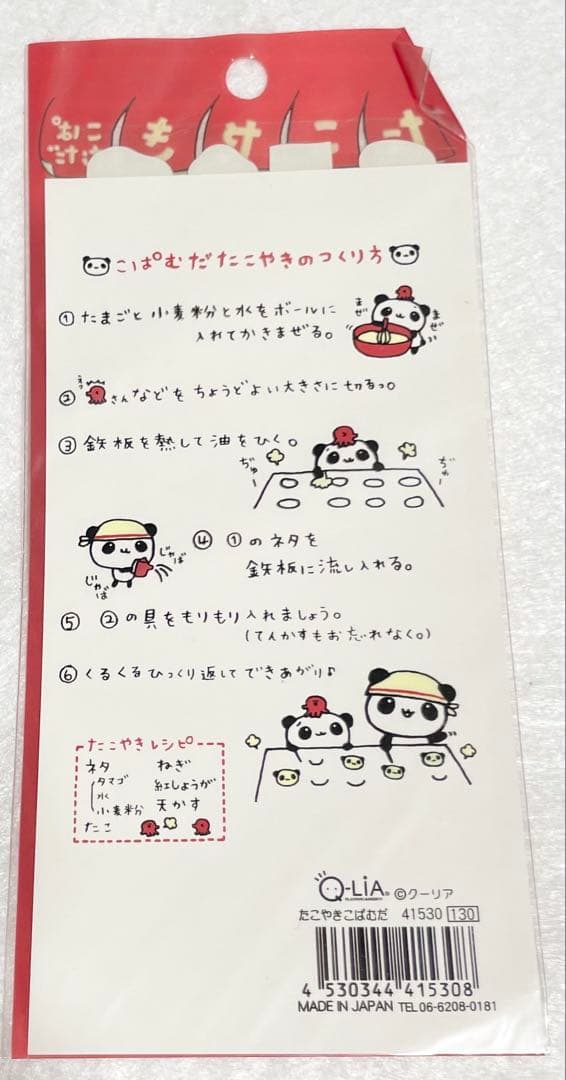 こぱ
むだ
たこやき
こぱむだたこやきのつくり方
① たまごと小麦粉と水をボールに
入れてかきまぜる。
まぜ
まぜ
② さんなどをちょうどよい大きさに切るっ。
③ 鉄板を熱して油をひく。
ぢゅー
ぢゅー
④ ①のネタを
鉄板に流し入れる。
じゃば
じゃば
⑤ ②の具をもりもり入れましょう。
(てんかすもお忘れなく。)
⑥ くるくるひっくり返してできあがり♪
たこやきレシピ
ネタ ねぎ
タマゴ 紅しょうが
水 天かす
小麦粉
たこ
Q-LiA ©クーリア
たこやきこぱむだ 41530 130
4 530344 415308
MADE IN JAPAN TEL 06-6208-0181